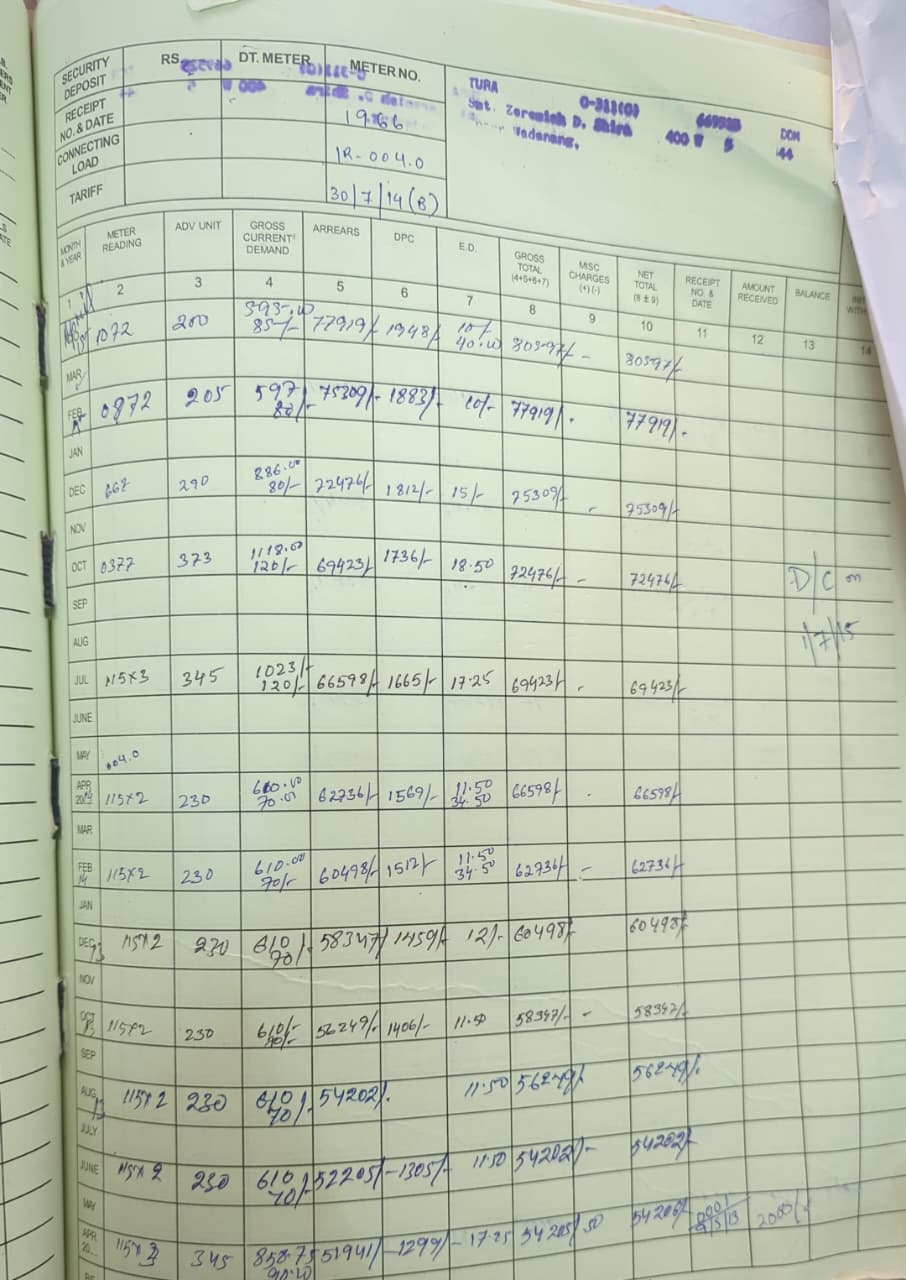 SECURITY DEPOSIT RS. DT. METER METER NO.
RECEIPT NO. & DATE 19866
CONNECTING LOAD 1R-004.0
TARIFF 30/7/14 (B)
TURA O-311(O) 669525 DOM
Smt. Zereniah D. Shira 400 V 5 44
Wadanang,
MONTH & YEAR METER READING ADV UNIT GROSS CURRENT DEMAND ARREARS DPC E.D. GROSS TOTAL (4+5+6+7) MISC CHARGES (+) (-) NET TOTAL (8 ± 9) RECEIPT NO. & DATE AMOUNT RECEIVED BALANCE
1 2 3 4 5 6 7 8 9 10 11 12 13 14
1072 200 593.00 85/- 77919/- 1948/- 10/- 40.00 80597/- - 80597/-
MAR
FEB 0872 205 597/- 80/- 75309/- 1883/- 10/- 77919/- 77919/-
JAN
DEC 667 290 886.00 80/- 72476/- 1812/- 15/- 75309/- - 75309/-
NOV
OCT 0377 373 1118.00 120/- 69423/- 1736/- 18.50 72476/- - 72476/-
D/C on
1/7/15
SEP
AUG
JUL 115x3 345 1023/- 120/- 66598/- 1665/- 17.25 69423/- - 69423/-
JUNE
MAY 004.0
APR 2014 115x2 230 610.00 70.00 62736/- 1569/- 11.50 34.50 66598/- - 66598/-
MAR
FEB 14 115x2 230 610.00 70/- 60498/- 1512/- 11.50 34.50 62736/- - 62736/-
JAN
DEC 13 115x2 230 610 70/- 58347/- 1459/- 12/- 60498/- 60498/-
NOV
OCT 13 115x2 230 610/- 70/- 56249/- 1406/- 11.50 58347/- - 58347/-
SEP
AUG 13 115x2 230 610 70/- 54202/- 11.50 56249/- 56249/-
JULY
JUNE 115x2 230 610 70/- 52205/- 1305/- 11.50 54202/- 54202/-
MAY
APR 20 115x3 345 858.75 90.20 51941/- 1299/- 17.25 54205/50 54206/- 9/5/13 2000/-